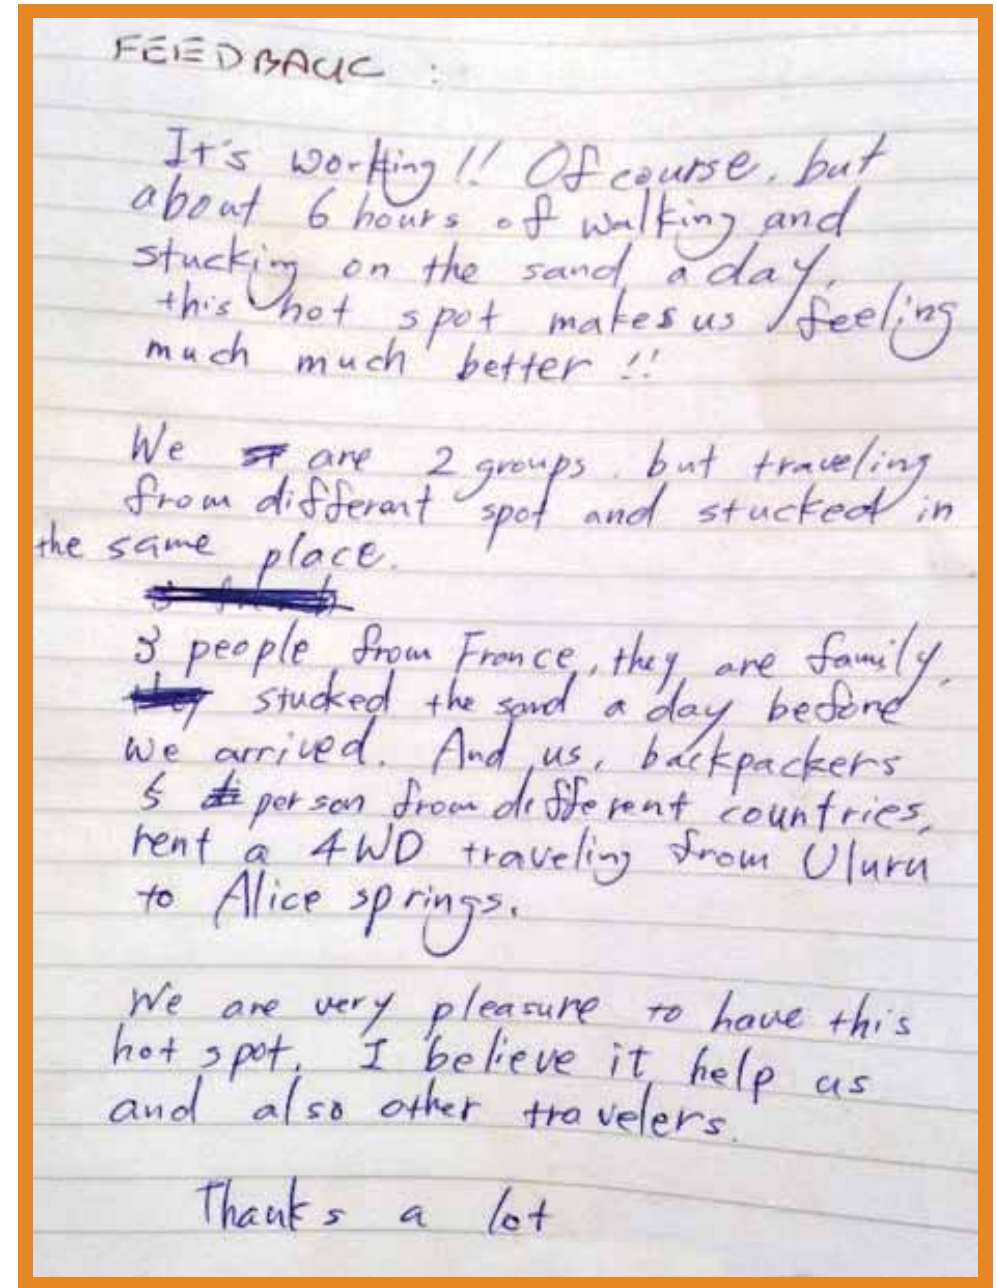 FEEDBACK :
It's working!! Of course, but
about 6 hours of walking and
stucking on the sand a day,
this hot spot makes us feeling
much much better !!
We are 2 groups, but traveling
from different spot and stucked in
the same place.
3 people from France, they are family,
stucked the sand a day before
we arrived. And us, backpackers
5 person from different countries,
rent a 4WD traveling from Uluru
to Alice springs.
We are very pleasure to have this
hot spot. I believe it help us
and also other travelers.
Thanks a lot